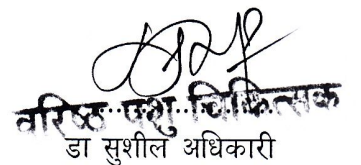 वरिष्ठ पशु चिकित्सक
डा सुशील अधिकारी